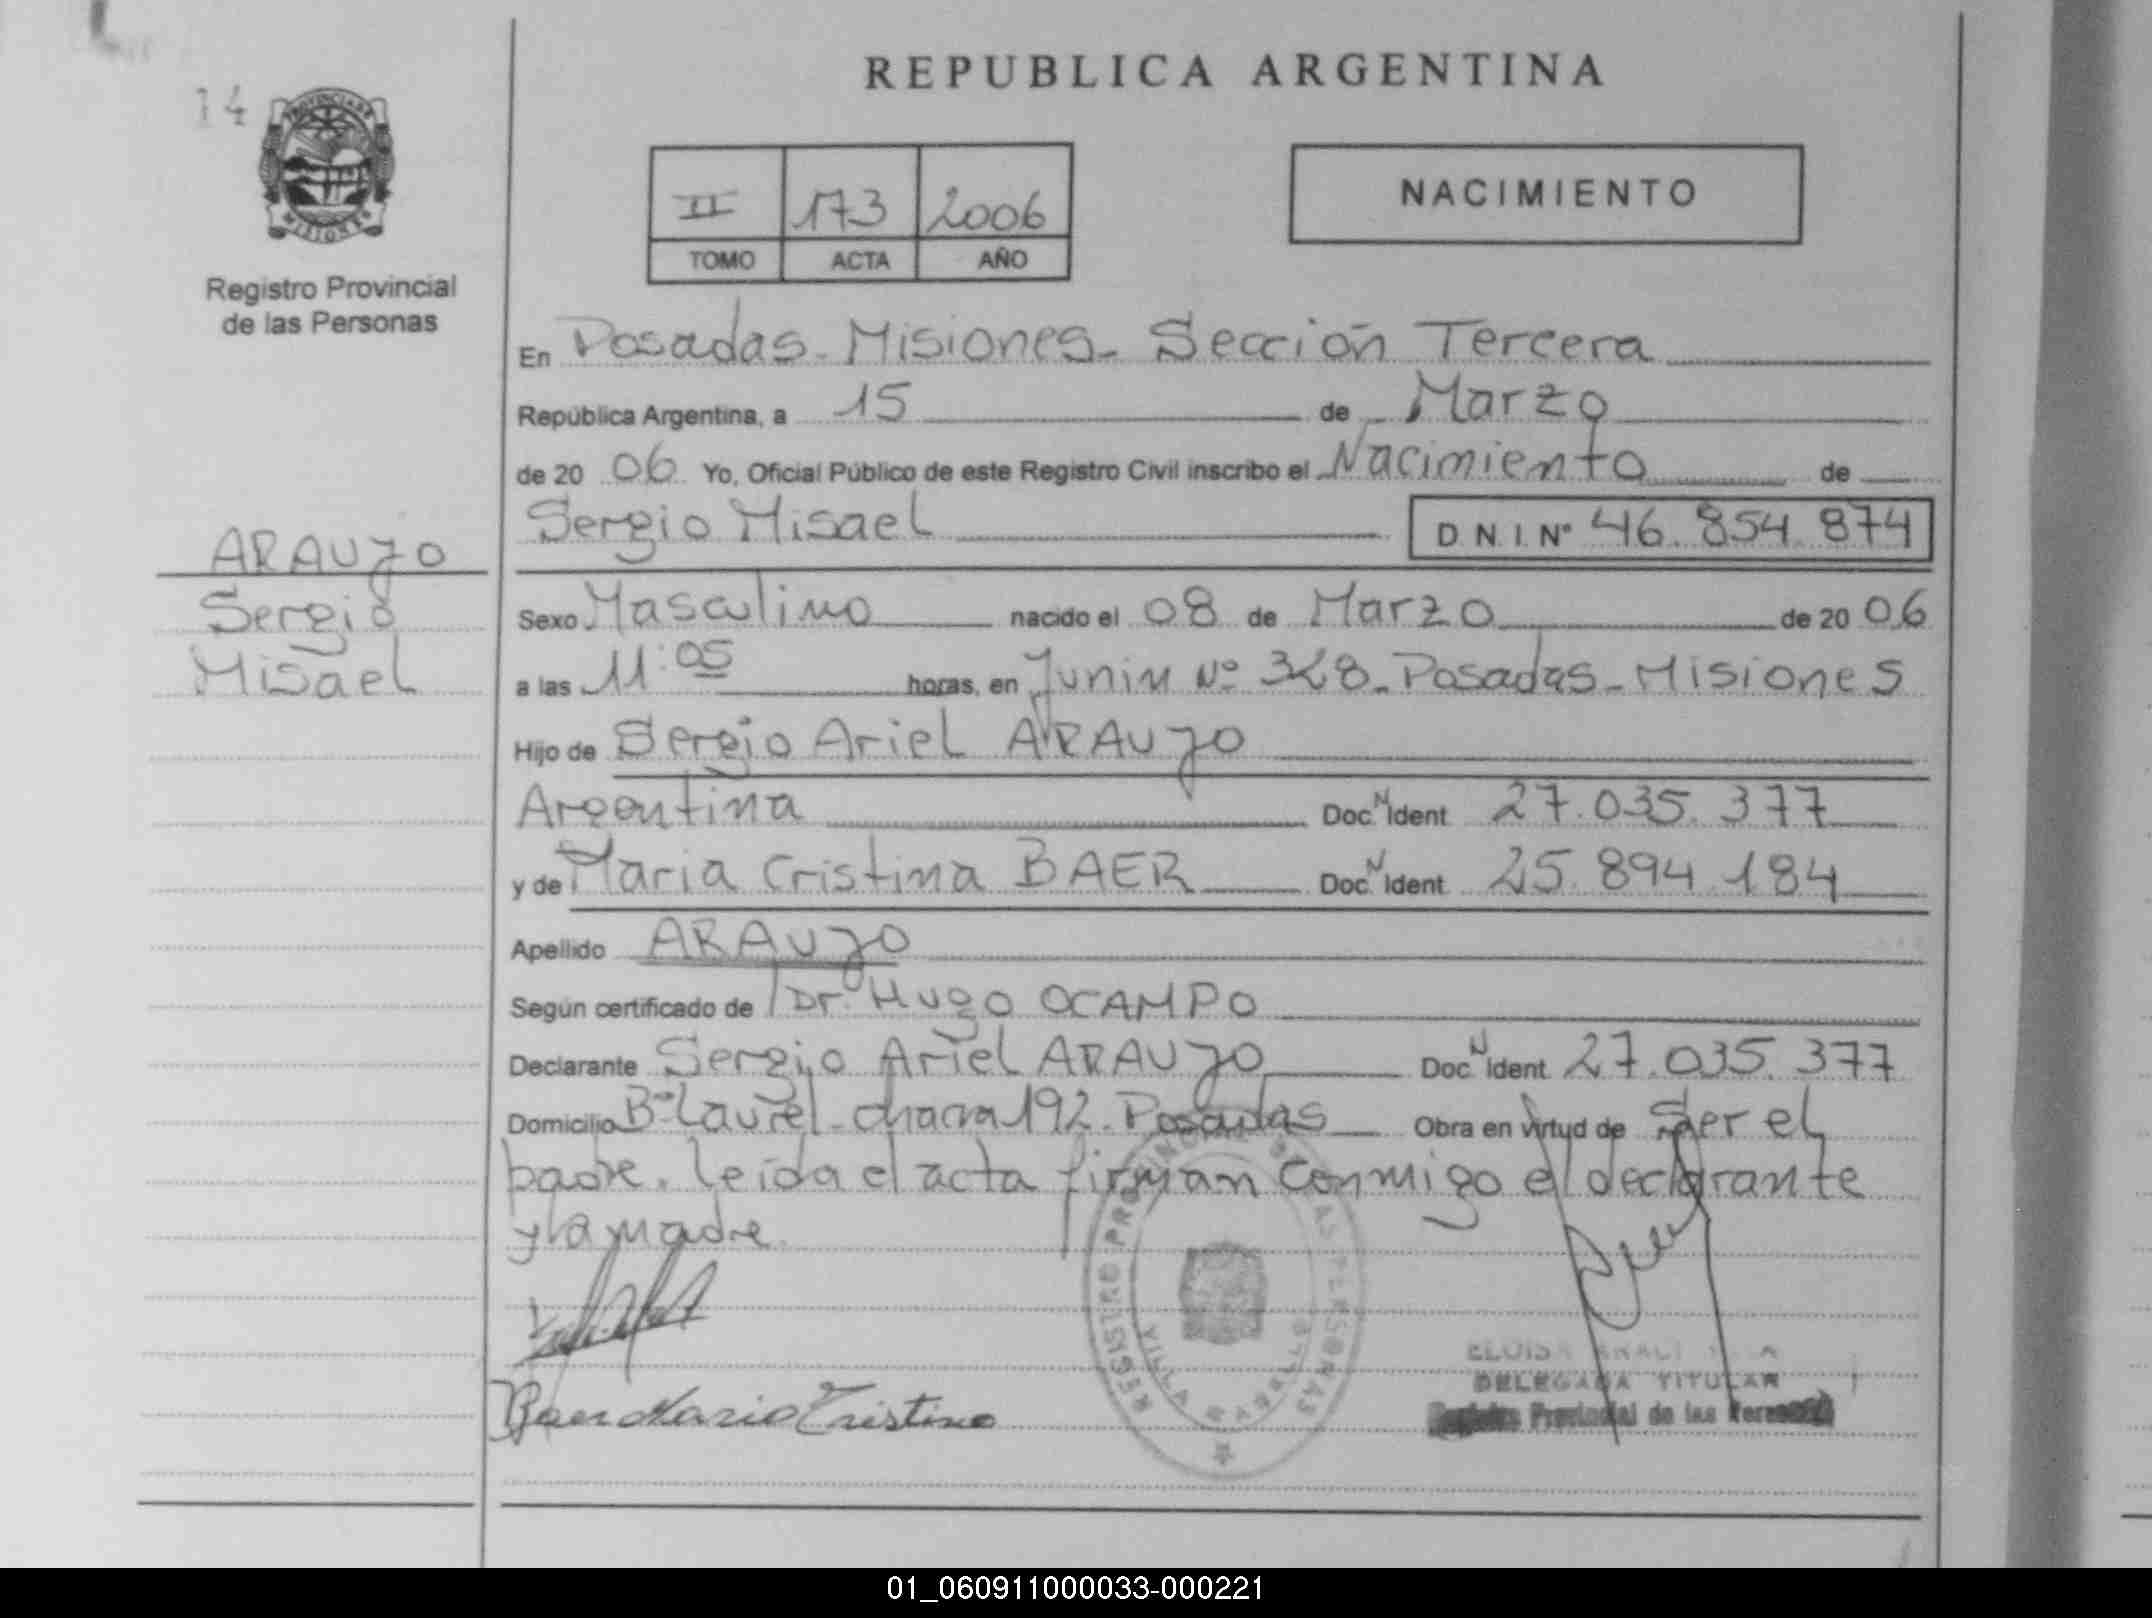 14
PROVINCIA DE
MISIONES
Registro Provincial
de las Personas
ARAUJO
Sergio
Misael
REPUBLICA ARGENTINA
II 173 2006
TOMO ACTA AÑO
NACIMIENTO
En Posadas - Misiones - Sección Tercera
República Argentina, a 15 de Marzo
de 20 06 Yo, Oficial Público de este Registro Civil inscribo el Nacimiento de
Sergio Misael D.N.I. Nº 46.854.874
Sexo Masculino nacido el 08 de Marzo de 20 06
a las 11:05 horas, en Junin Nº 328 - Posadas - Misiones
Hijo de Sergio Ariel ARAUJO
Argentina Doc. N Ident 27.035.377
y de Maria Cristina BAER Doc. N Ident 25.894.184
Apellido ARAUJO
Según certificado de Dr. Hugo OCAMPO
Declarante Sergio Ariel ARAUJO Doc. N Ident 27.035.377
Domicilio Bº Laurel - chacra 192 - Posadas Obra en virtud de Ser el
padre. leída el acta firman conmigo el declarante
y la madre.
Baer Maria Cristina
REGISTRO PROVINCIAL DE LAS PERSONAS
VILLA
ELOISA
DELEGADA TITULAR
Registro Provincial de las Personas
01_060911000033-000221